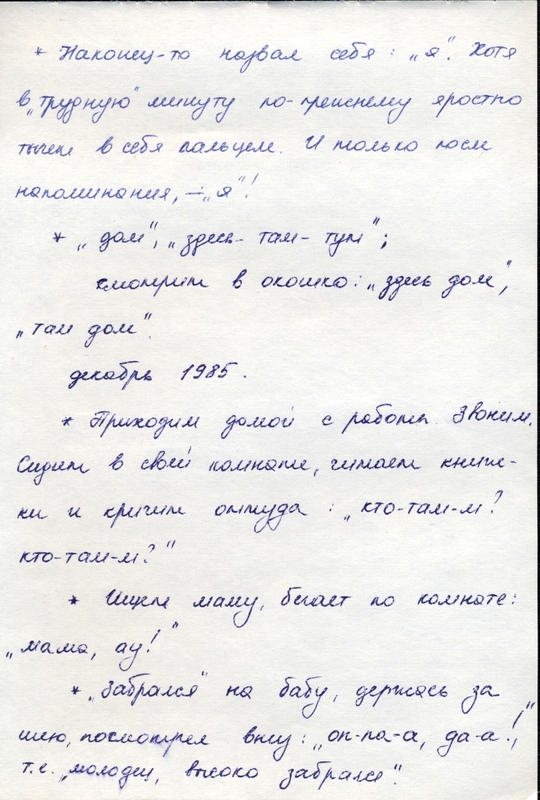 * Наконец-то назвал себя: „я". Хотя
в „трудную" минуту по-прежнему яростно
тычет в себя пальцем. И только после
напоминания, – „я"!
* „дом", „здесь-там-тут";
смотрит в окошко: „здесь дом",
„там дом".
декабрь 1985.
* Приходим домой с работы. Звоним.
Сидит в своей комнате, читает книж-
ки и кричит оттуда: „кто-там-м?
кто-там-м?"
* Ищет маму, бегает по комнате:
„мама, ау!"
* „Забрался" на бабу, держась за
шею, посмотрел вниз: „оп-па-а, да-а!",
т.е. „молодец, высоко забрался".